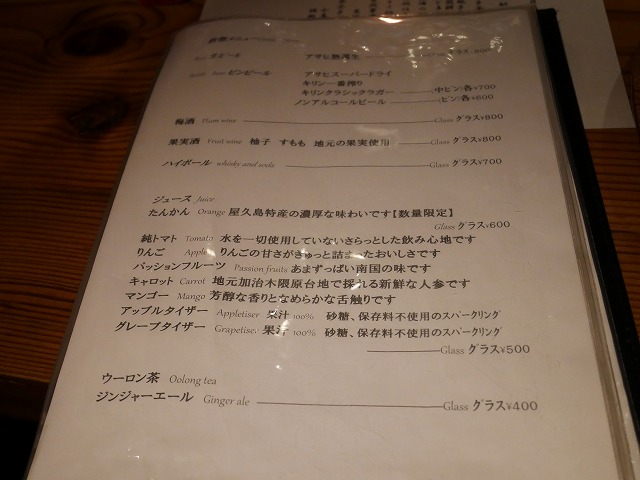 アサヒ熟撰生 グラス
ビンビール アサヒスーパードライ
キリン一番搾り
キリンクラシックラガー 中ビン:各¥700
ノンアルコールビール ビン:各¥600
梅酒 Plum wine Glass グラス¥800
果実酒 Fruit wine 柚子 すもも 地元の果実使用 Glass グラス¥800
ハイボール whisky and soda Glass グラス¥700
ジュース Juice
たんかん Orange 屋久島特産の濃厚な味わいです【数量限定】
Glass グラス¥600
純トマト Tomato 水を一切使用していないさらっとした飲み心地です
りんご Apple りんごの甘さがぎゅっと詰まったおいしさです
パッションフルーツ Passion fruits あまずっぱい南国の味です
キャロット Carrot 地元加治木隈原台地で採れる新鮮な人参です
マンゴー Mango 芳醇な香りとなめらかな舌触りです
アップルタイザー Appletiser 果汁100% 砂糖、保存料不使用のスパークリング
グレープタイザー Grapetiser 果汁100% 砂糖、保存料不使用のスパークリング
Glass グラス¥500
ウーロン茶 Oolong tea
ジンジャーエール Ginger ale Glass グラス¥400